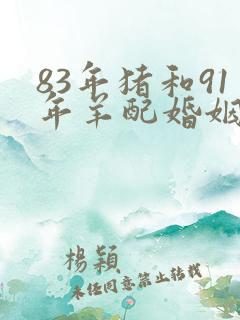 83年猪和91
年羊配婚姻
杨颖
未经同意禁止转载